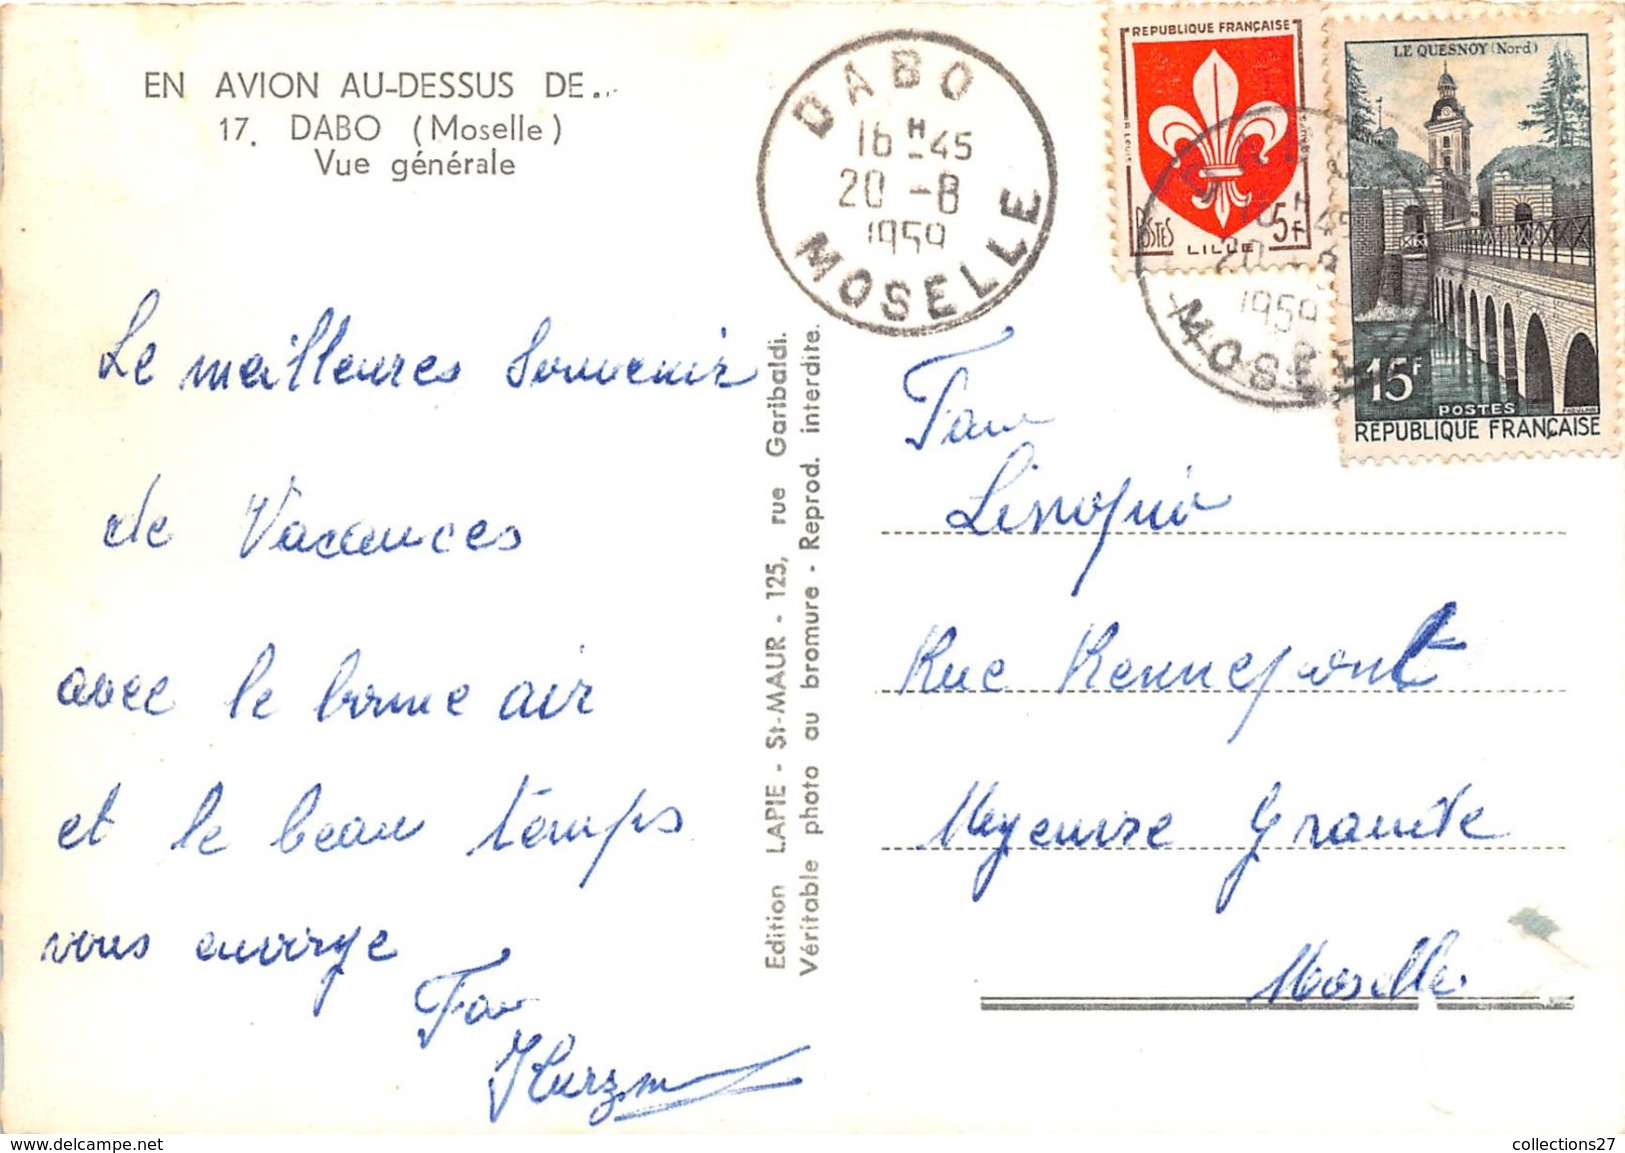 EN AVION AU-DESSUS DE...
17. DABO (Moselle)
Vue générale
DABO
16 H 45
20 -8
1959
MOSELLE
REPUBLIQUE FRANÇAISE
POSTES
5F
LILLE
LE QUESNOY (Nord)
15F
POSTES
REPUBLIQUE FRANÇAISE
16 H 45
20 - 8
1959
MOSELLE
Le meilleures Souvenir
de Vacances
avec le bonne air
et le beau temps
vous envoye
Fam
Edition LAPIE - St-MAUR - 125, rue Garibaldi.
Véritable photo au bromure - Reprod. interdite.
Fam
Rue Kennepont
Moyeuvre Grande
Moselle
collections27